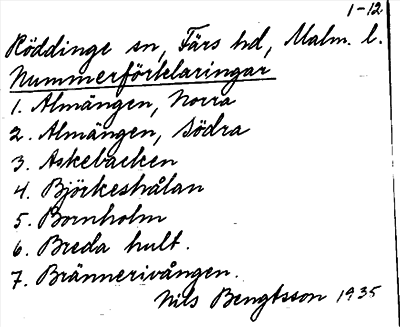 1-12
Röddinge sn, Färs hd, Malm. l.
Nummerförklaringar
1. Almängen, Norra
2. Almängen, Södra
3. Askebacken
4. Björkeshålan
5. Bornholm
6. Breda hult.
7. Brännerivången.
Nils Bengtsson 1935